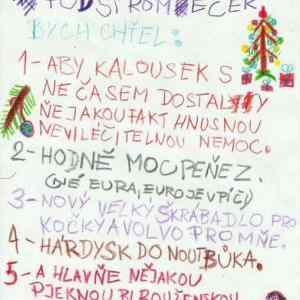 POD STROMEČEK
BYCH CHTĚL:
1- ABY KALOUSEK S
NEČASEM DOSTALY
ŇEJAKOU FAKT HNUSNOU
NEVILÉČITELNOU NEMOC.
2- HODNĚ MOC PEŇEZ.
(NÉ EURA, EURO JE V PÍČI)
3- NOVÝ VELKÝ ŠKRABADLO PRO
KOČKY A VOLVO PRO MŇE.
4- HÁRDYSK DO NOUTBŮKA.
5- A HLAVŇE NĚJAKOU
PJEKNOU BLROUŽENSKOU